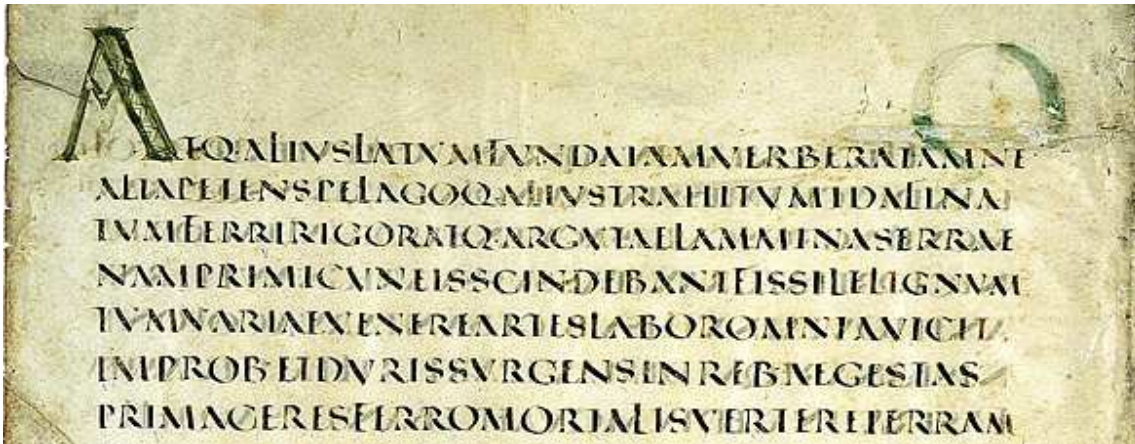 ATQ·ALIVSLATVMFVNDAIAMVERBERATAMNE
ALTAPETENSPELAGOQ·ALIVSTRAHITVMIDALINA
TVMFERRIRIGORATQ·ARGVTAELAMMINASERRAE
NAMPRIMICVNEISSCINDEBANTFISSILELIGNVM
TVMVARIAEVENEREARTESLABOROMNIAVICIT
IMPROB·ETDVRISSVRGENSINREBVEGESTAS
PRIMACERESFERROMORTALISVERTERETERRAM